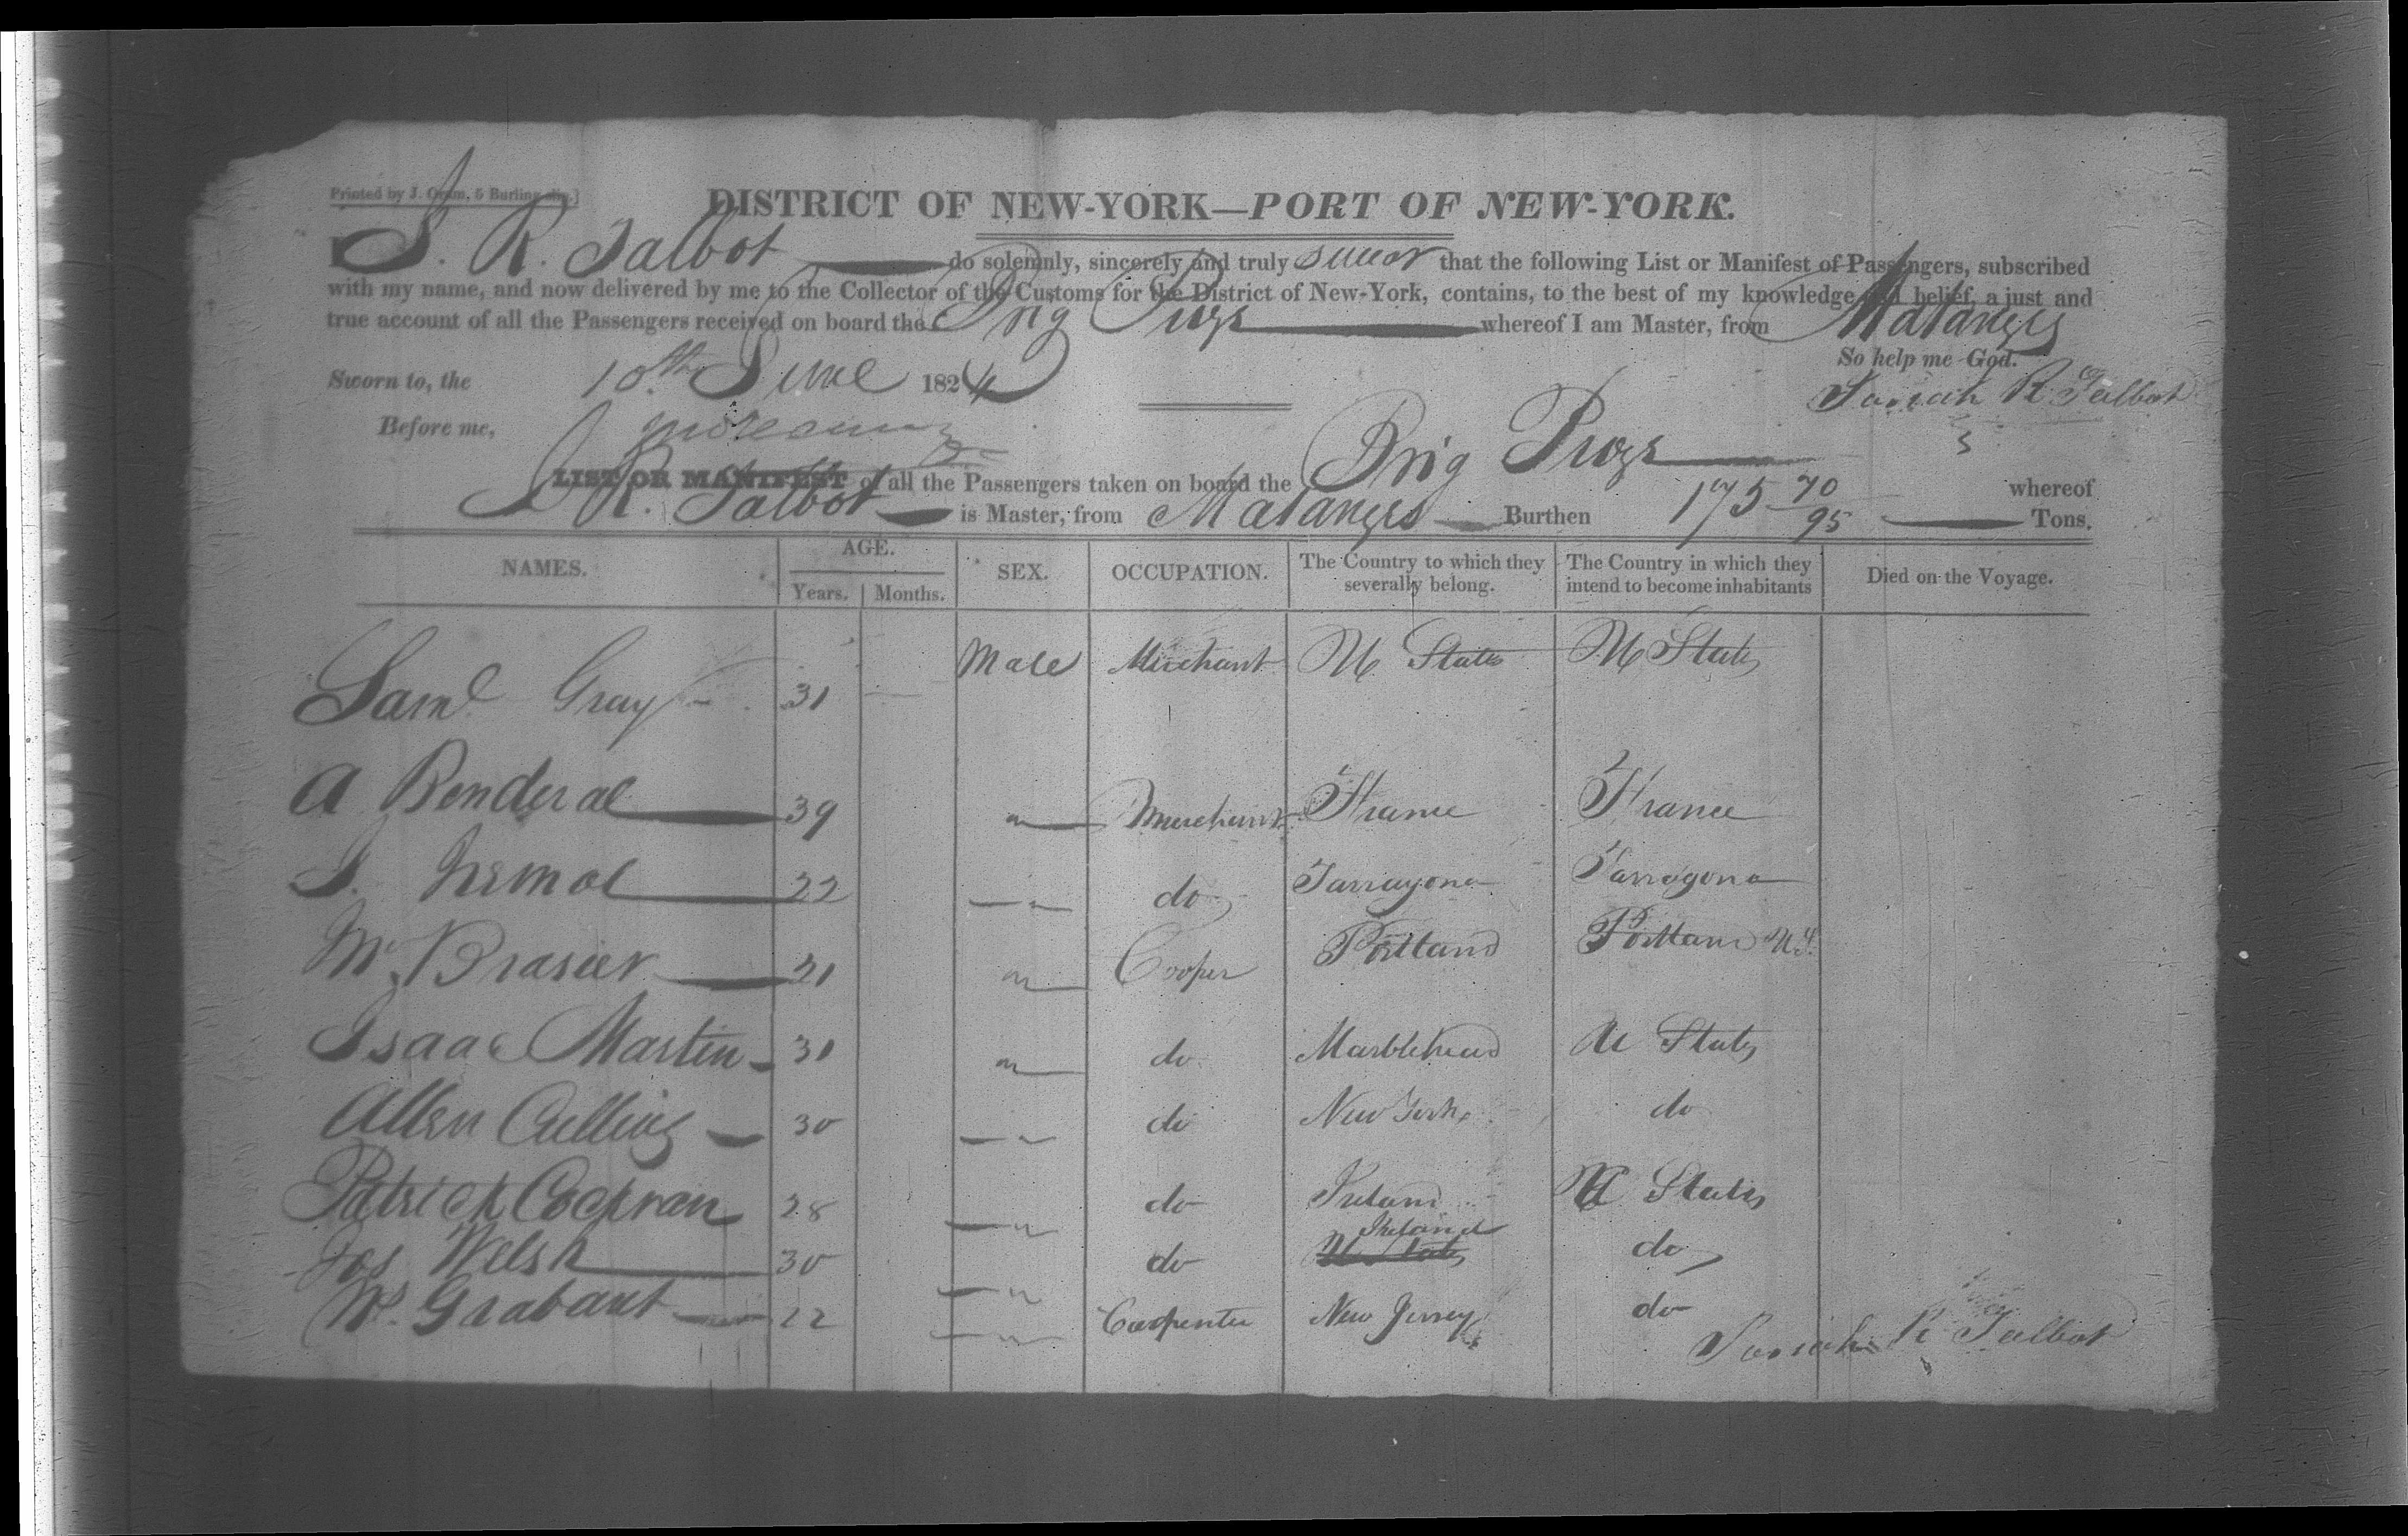 Printed by J. Oram, 5 Burling slip.]
DISTRICT OF NEW-YORK—PORT OF NEW-YORK.
I J. R. Talbot do solemnly, sincerely and truly swear that the following List or Manifest of Passengers, subscribed
with my name, and now delivered by me to the Collector of the Customs for the District of New-York, contains, to the best of my knowledge and belief, a just and
true account of all the Passengers received on board the Brig whereof I am Master, from Matanzas
So help me God.
Sworn to, the 10th June 1824
Josiah R Talbot
Before me,
LIST OR MANIFEST of all the Passengers taken on board the Brig whereof
J R. Talbot is Master, from Matanzas Burthen 175 70/95 Tons.
NAMES. AGE. Years. Months. SEX. OCCUPATION. The Country to which they severally belong. The Country in which they intend to become inhabitants Died on the Voyage.
Saml Gray 31 — Male Merchant U States U States
A Benderal 39 " Merchant France France
J. 22 " do Tarragona Tarragona
Mr Brasier 21 " Cooper Portland Portland U.S.
Isaac Martin 31 " do Marblehead U States
Allen Culling 30 " do New York do
Patrick Cochran 28 " do Ireland U States
Jos Welsh 30 " do U States Ireland do
Grabant 22 " Carpenter New Jersey do
Josiah R Talbot